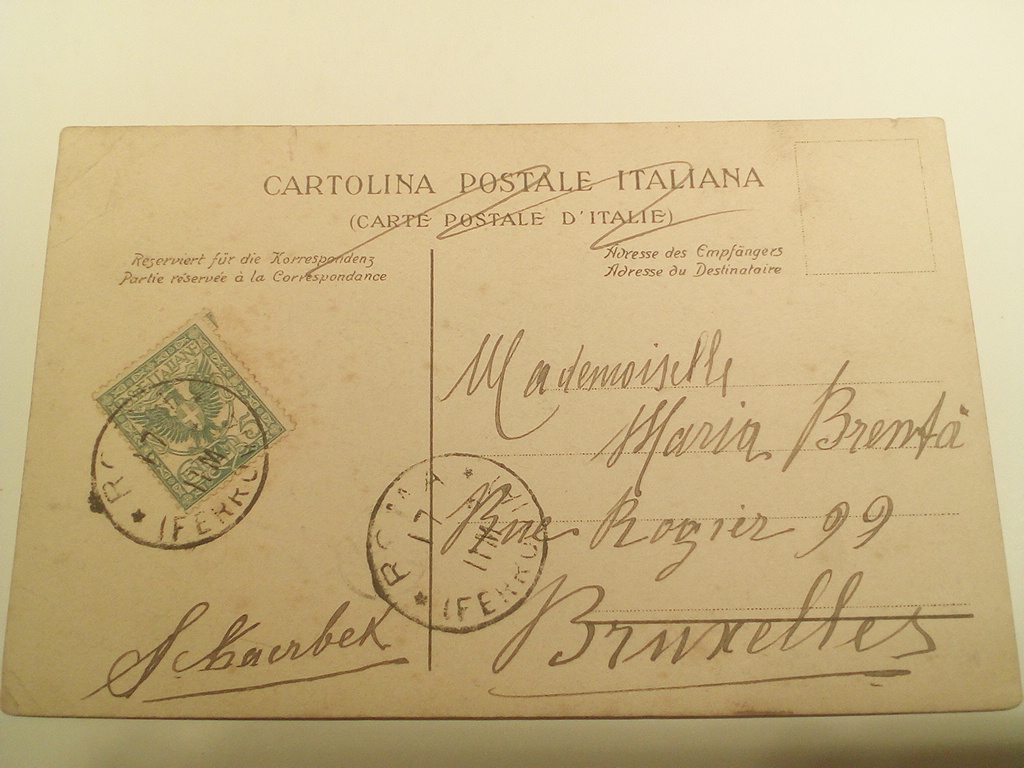 CARTOLINA POSTALE ITALIANA
(CARTE POSTALE D'ITALIE)
Reserviert für die Korrespondenz
Partie réservée à la Correspondance
Adresse des Empfängers
Adresse du Destinataire
Mademoiselle
Maria Brentà
Rue Rogier 99
Bruxelles
Schaerbek
ROMA
17
FERROVIA